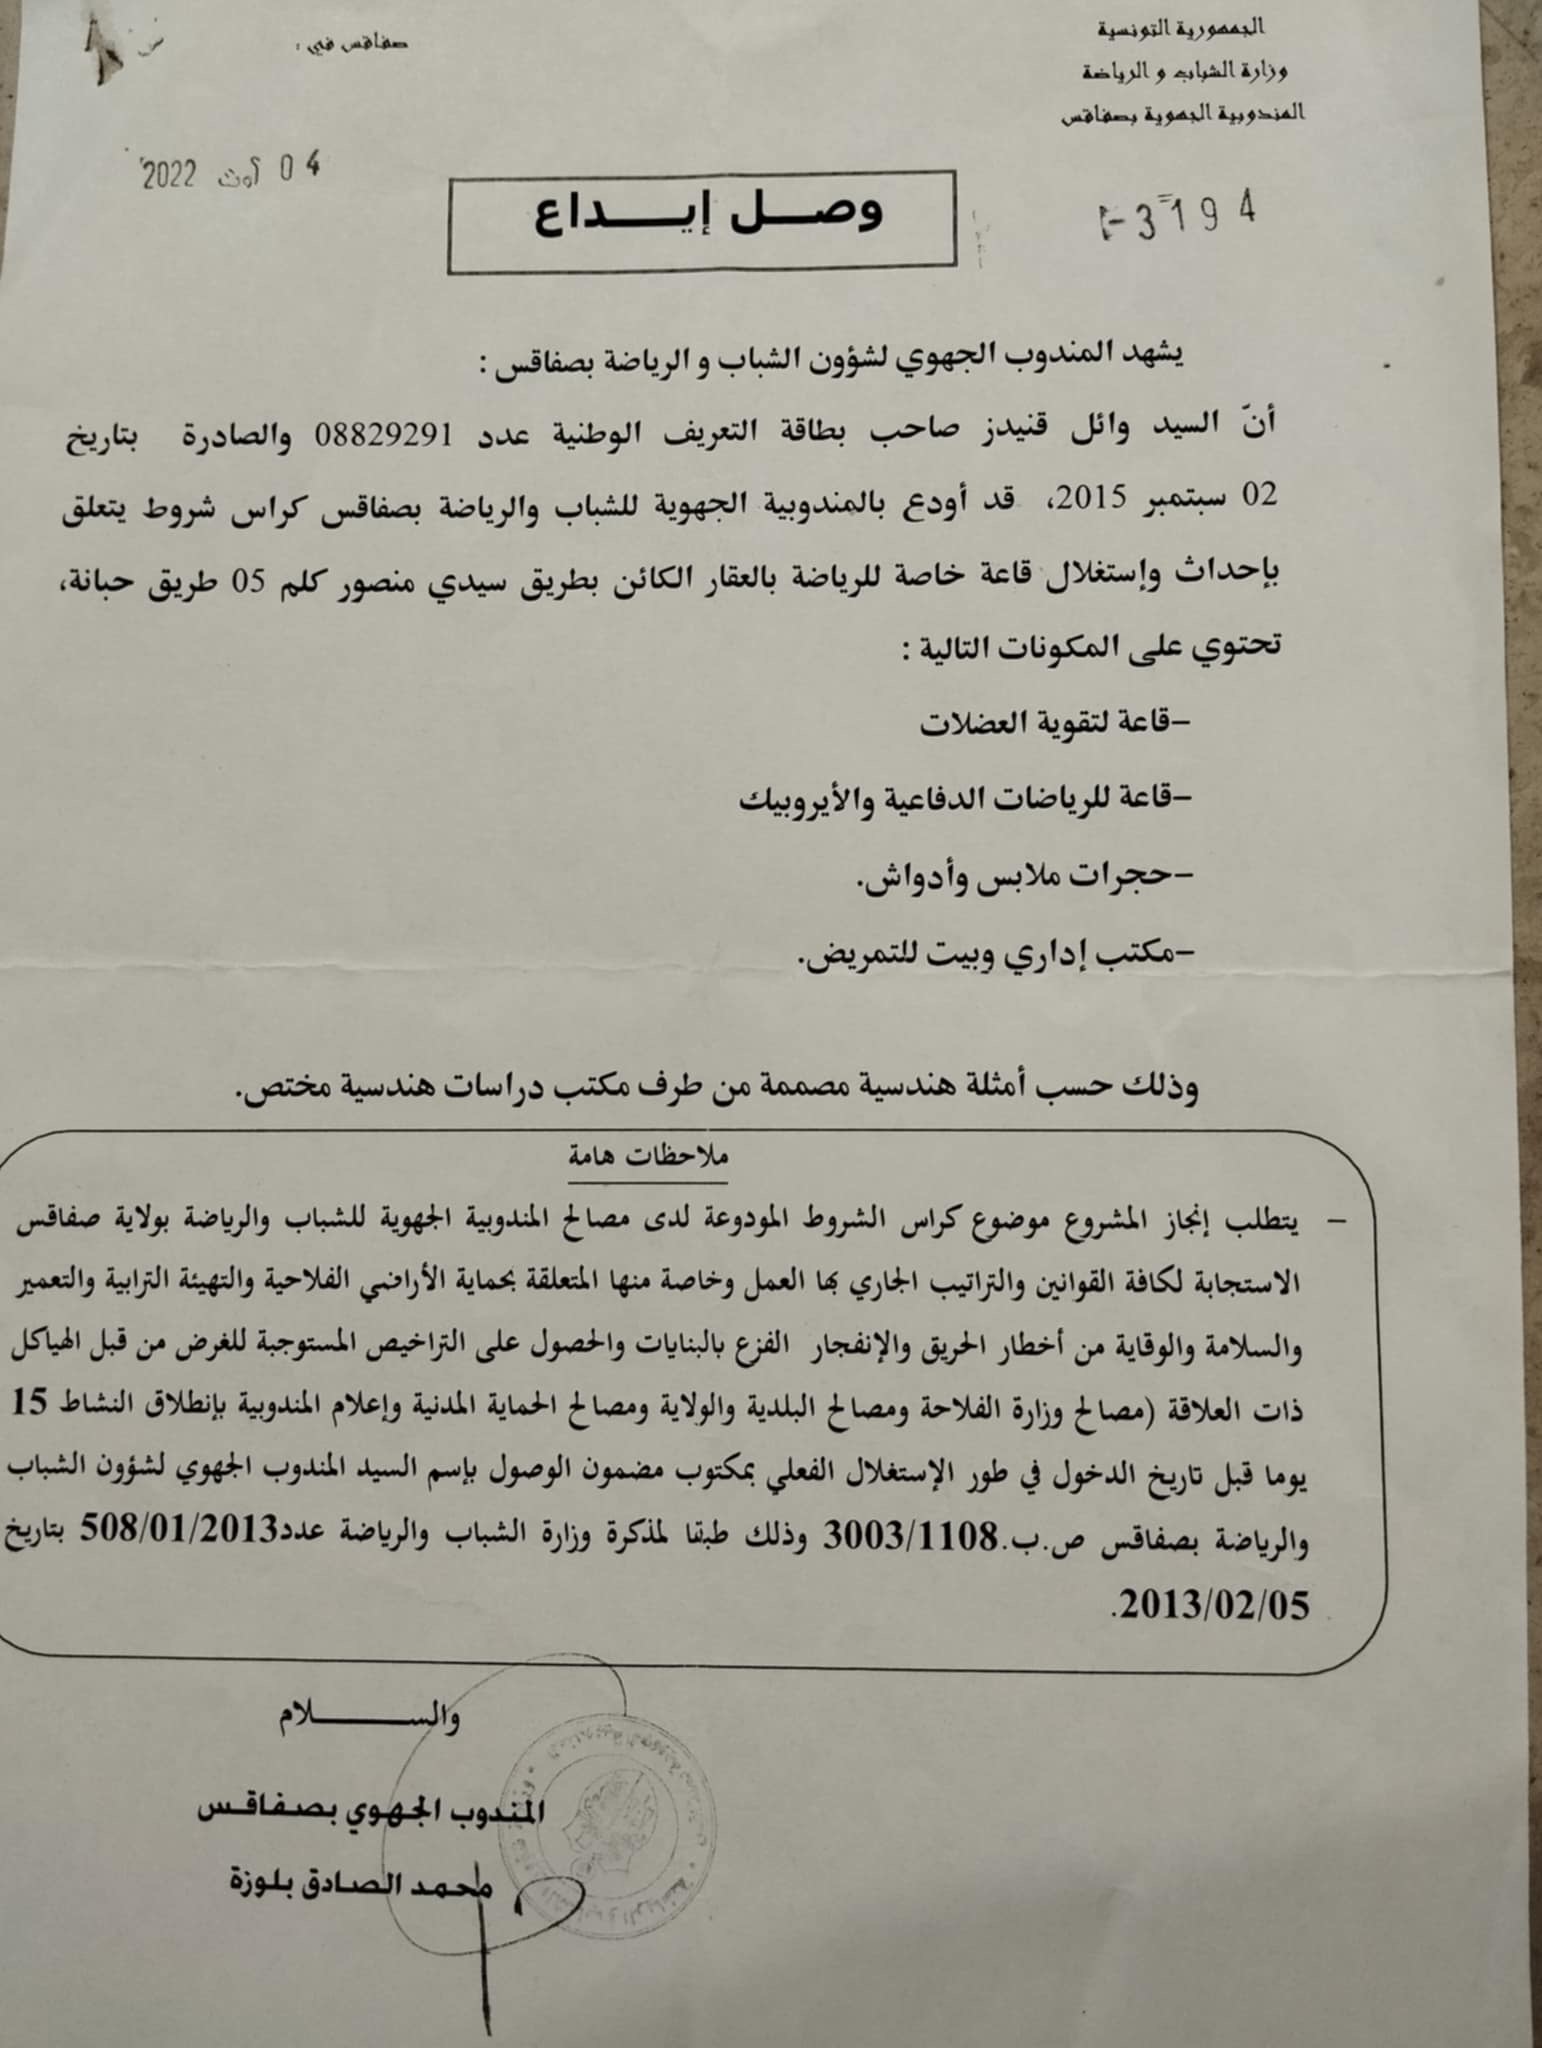 الجمهورية التونسية
وزارة الشباب و الرياضة
المندوبية الجهوية بصفاقس
صفاقس في :
04 أوت 2022
3194
وصــل إيــــداع
يشهد المندوب الجهوي لشؤون الشباب و الرياضة بصفاقس :
أنّ السيد وائل قنيدز صاحب بطاقة التعريف الوطنية عدد 08829291 والصادرة بتاريخ
02 سبتمبر 2015، قد أودع بالمندوبية الجهوية للشباب والرياضة بصفاقس كراس شروط يتعلق
بإحداث وإستغلال قاعة خاصة للرياضة بالعقار الكائن بطريق سيدي منصور كلم 05 طريق حبانة،
تحتوي على المكونات التالية :
-قاعة لتقوية العضلات
-قاعة للرياضات الدفاعية والأيروبيك
-حجرات ملابس وأدواش.
-مكتب إداري وبيت للتمريض.
وذلك حسب أمثلة هندسية مصممة من طرف مكتب دراسات هندسية مختص.
ملاحظات هامة
– يتطلب إنجاز المشروع موضوع كراس الشروط المودوعة لدى مصالح المندوبية الجهوية للشباب والرياضة بولاية صفاقس
الاستجابة لكافة القوانين والتراتيب الجاري بها العمل وخاصة منها المتعلقة بحماية الأراضي الفلاحية والتهيئة الترابية والتعمير
والسلامة والوقاية من أخطار الحريق والإنفجار الفزع بالبنايات والحصول على التراخيص المستوجبة للغرض من قبل الهياكل
ذات العلاقة (مصالح وزارة الفلاحة ومصالح البلدية والولاية ومصالح الحماية المدنية وإعلام المندوبية بإنطلاق النشاط 15
يوما قبل تاريخ الدخول في طور الإستغلال الفعلي بمكتوب مضمون الوصول بإسم السيد المندوب الجهوي لشؤون الشباب
والرياضة بصفاقس ص.ب.3003/1108 وذلك طبقا لمذكرة وزارة الشباب والرياضة عدد508/01/2013 بتاريخ
2013/02/05.
والســـــــلام
المندوب الجهوي بصفاقس
محمد الصادق بلوزة